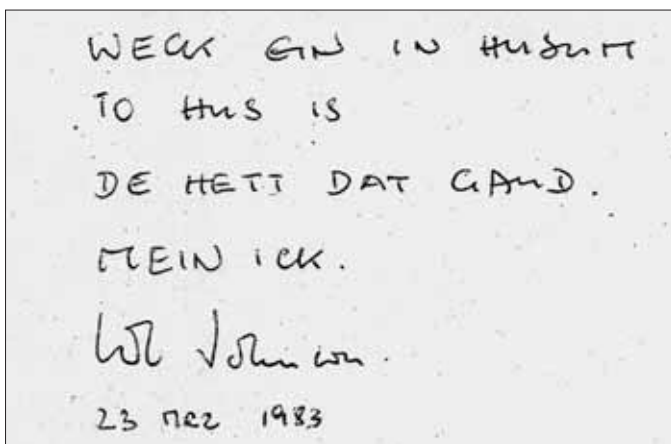 WECK EIN IN HUSUM
TO HUS IS
DE HETT DAT GAUD.
MEIN ICK.
Uwe Johnson.
23 MRZ 1983